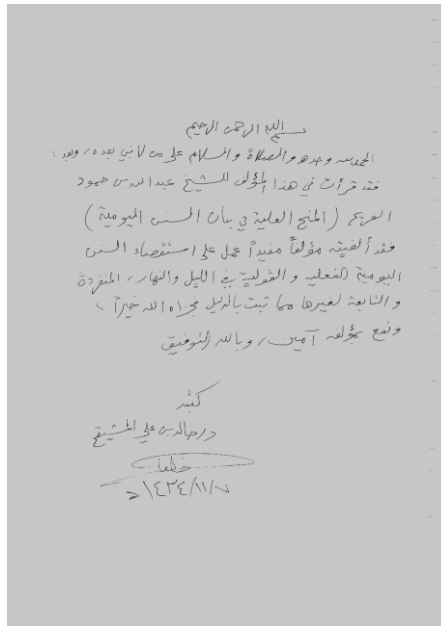 بسم الله الرحمن الرحيم
الحمد لله وحده والصلاة والسلام على من لا نبي بعده، وبعد:
فقد قرأت في هذا المؤلف للشيخ عبدالله بن حمود
الفريح (المنح العلية في بيان السنن اليومية)
فقد ألفيته مؤلفاً مفيداً عمل على استقصاء السنن
اليومية الفعلية والقولية في الليل والنهار، المنفردة
والتابعة لغيرها مما ثبت بالدليل فجزاه الله خيراً،
ونفع بمؤلفه آمين، وبالله التوفيق.
كتبه
د/خالد بن علي المشيقح
١٤٣٤/١١/٧هـ